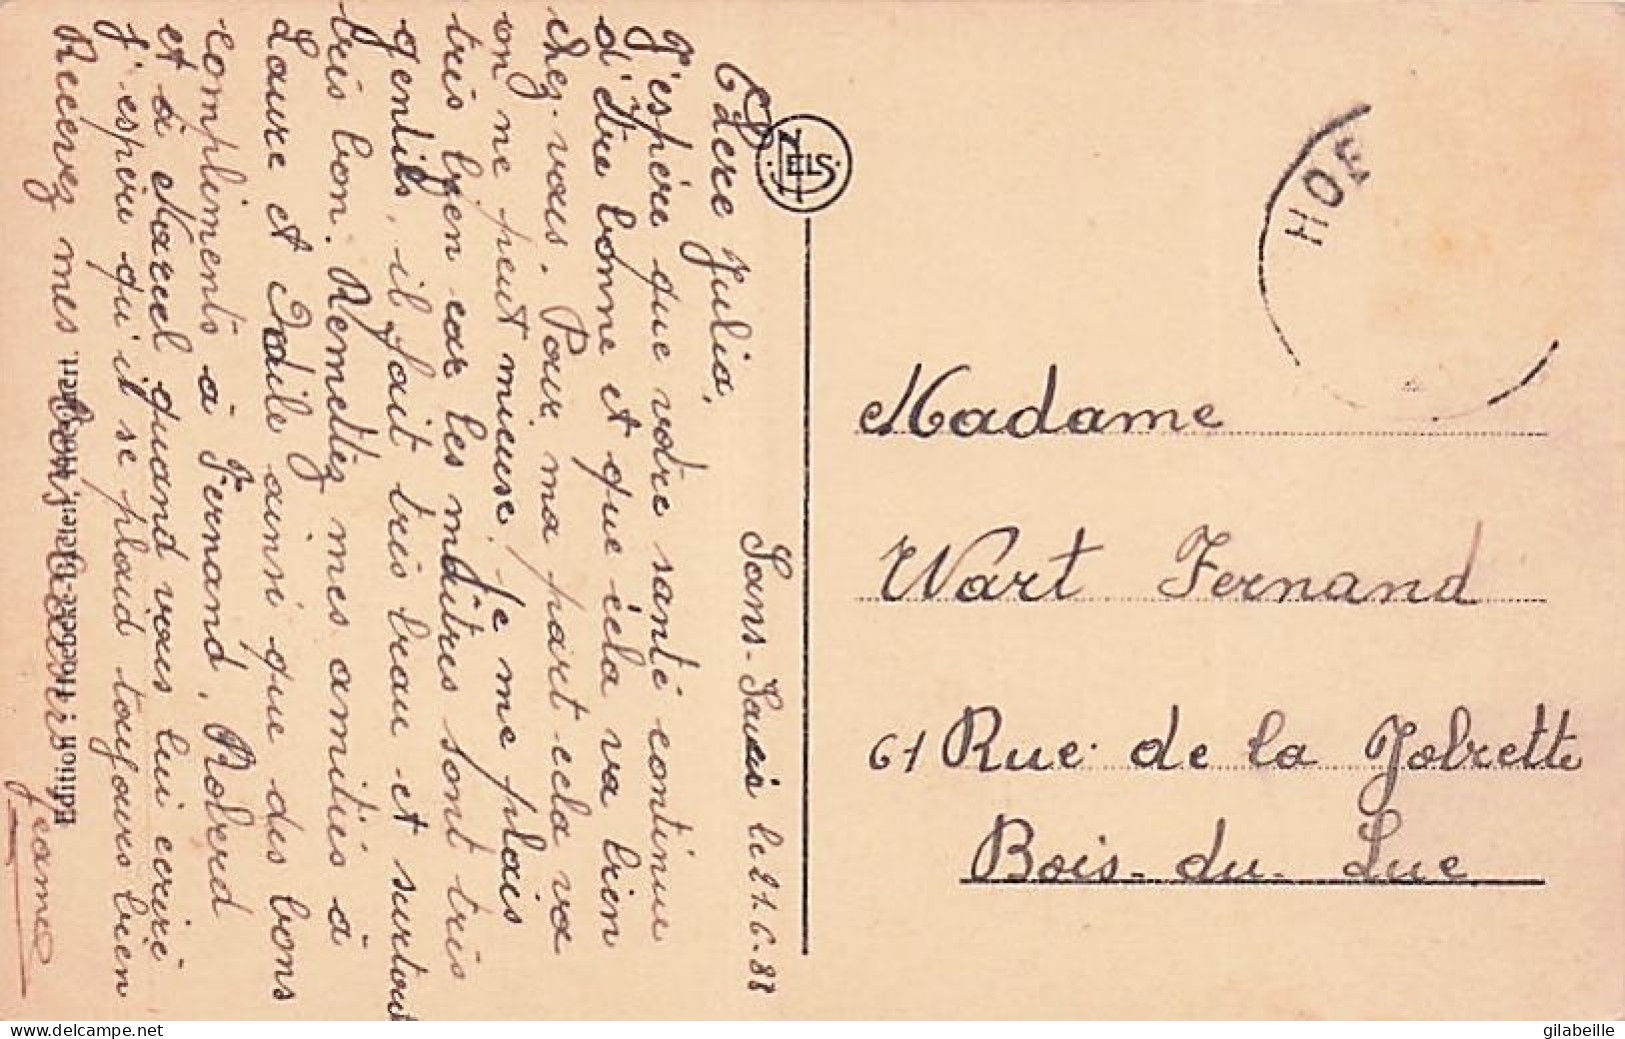 Sars-Sars le 21.6-38
Chère Julia,
J'espère que votre santé continue
d'être bonne et que cela va bien
chez-vous. Pour ma part cela va
on ne peut mieux. Je me plais
très byen car les maîtres sont très
gentils, il fait très beau et surtout
très bon. Remettez mes amitiés à
Laure et Odile ainsi que des bons
compliments à Fernand, Roberd
et à Marcel quand vous lui ecriré
j'espère qu'il se plaid toujours bien
Recevez mes bons baisers
Jeanne
Edition :
NELS
HOF
Madame
Wart Fernand
61 Rue de la Jobrette
Bois-du-Luc
© delcampe.net
gilabeille